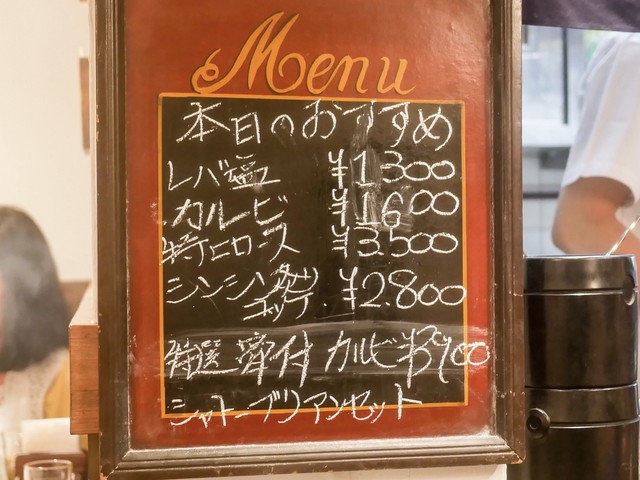 Menu
本日のおすすめ
レバ塩 ¥1300
カルビ ¥1600
特上ロース ¥3500
シンシン ¥2.800
特選 骨付 カルビ
シャトーブリアンセット